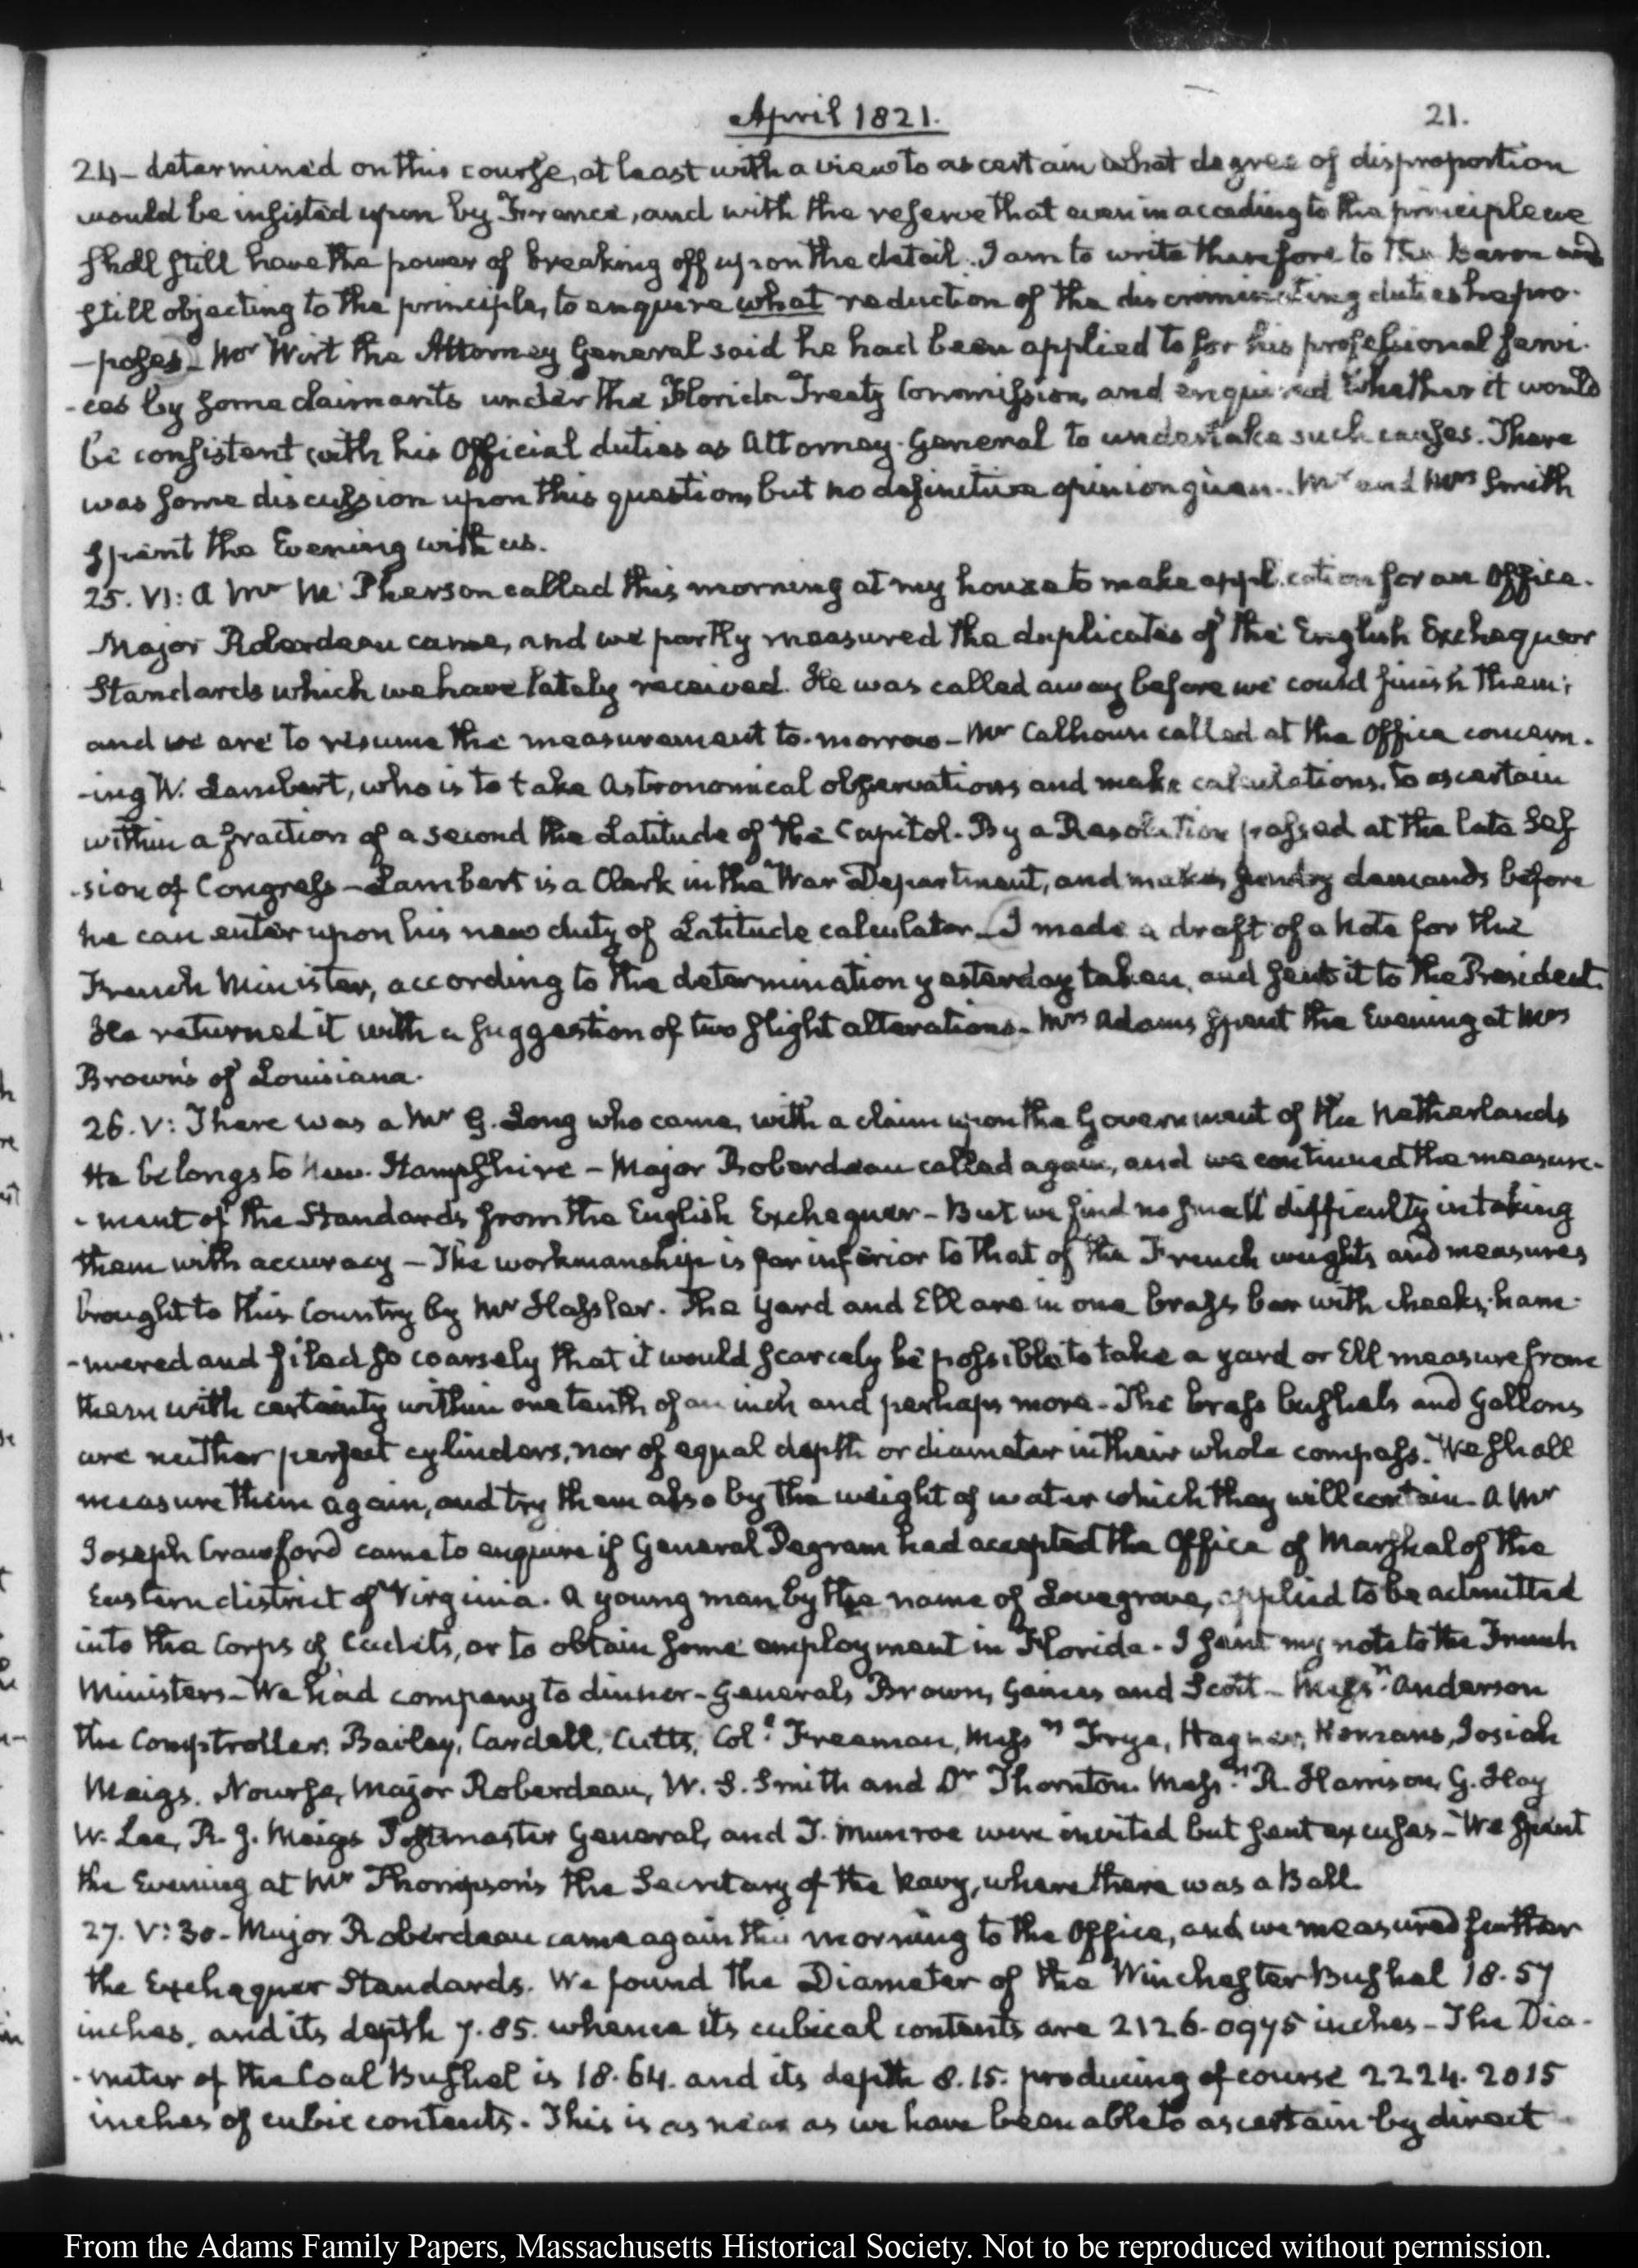 April 1821. 21.
24 – determined on this course, at least with a view to ascertain what degree of disproportion
would be insisted upon by France, and with the reserve that even in acceding to the principle we
shall still have the power of breaking off upon the detail. I am to write therefore to the Baron and
still objecting to the principle, to enquire what reduction of the discriminating duties he pro-
-poses – Mr Wirt the Attorney General said he had been applied to for his professional servi-
-ces by some claimants under the Florida Treaty Commission, and enquired whether it would
be consistent with his Official duties as Attorney-General to undertake such causes. There
was some discussion upon this question, but no definitive opinion given. Mr and Mrs Smith
spent the Evening with us.
25. VI: A Mr McPherson called this morning at my house to make application for an Office.
Major Roberdeau came, and we partly measured the duplicates of the English Exchequer
Standards which we have lately received. He was called away before we could finish them;
and we are to resume the measurement to-morrow – Mr Calhoun called at the Office concern-
-ing W. Lambert, who is to take Astronomical observations and make calculations, to ascertain
within a fraction of a second the Latitude of the Capitol. By a Resolution passed at the late Ses
-sion of Congress – Lambert is a Clerk in the War Department, and makes sundry demands before
he can enter upon his new duty of Latitude calculator – I made a draft of a Note for the
French Minister, according to the determination yesterday taken, and sent it to the President.
He returned it with a suggestion of two slight alterations. Mrs Adams spent the Evening at Mrs
Brown's of Louisiana.
26. V: There was a Mr G. Long who came, with a claim upon the Government of the Netherlands
He belongs to New-Hampshire – Major Roberdeau called again, and we continued the measure-
-ment of the Standards from the English Exchequer – But we find no small difficulty in taking
them with accuracy – The workmanship is far inferior to that of the French weights and measures
brought to this Country by Mr Hassler. The yard and Ell are in one brass bar with cheeks, ham-
-mered and filed so coarsely that it would scarcely be possible to take a yard or Ell measure from
them with certainty within one tenth of an inch and perhaps more – The brass bushels and Gallons
are neither perfect cylinders, nor of equal depth or diameter in their whole compass. We shall
measure them again, and try them also by the weight of water which they will contain. A Mr
Joseph Crawford came to enquire if General Pegram had accepted the Office of Marshal of the
Eastern district of Virginia. A young man by the name of Lovegrove, applied to be admitted
into the Corps of Cadets, or to obtain some employment in Florida – I sent my note to the French
Ministers – We had company to dinner – Generals Brown, Gaines and Scott – Messrs. Anderson
the Comptroller, Bailey, Cardell, Cutts, Coll. Freeman, Messrs Frye, Hagner, Josiah
Meigs, Nourse, Major Roberdeau, W. S. Smith and Dr Thornton. Messrs. R. Harrison, G. Hay
W. Lee, R. J. Meigs Postmaster General, and T. Munroe were invited but sent excuses – We spent
the Evening at Mr Thompson's the Secretary of the Navy, where there was a Ball.
27. V:30 – Major Roberdeau came again this morning to the Office, and we measured further
the Exchequer Standards. We found the Diameter of the Winchester Bushel 18.57
inches, and its depth 7.85. whence its cubical contents are 2126.0975 inches – The Dia-
-meter of the Coal Bushel is 18.64. and its depth 8.15. producing of course 2224.2015
inches of cubic contents. This is as near as we have been able to ascertain by direct
From the Adams Family Papers, Massachusetts Historical Society. Not to be reproduced without permission.